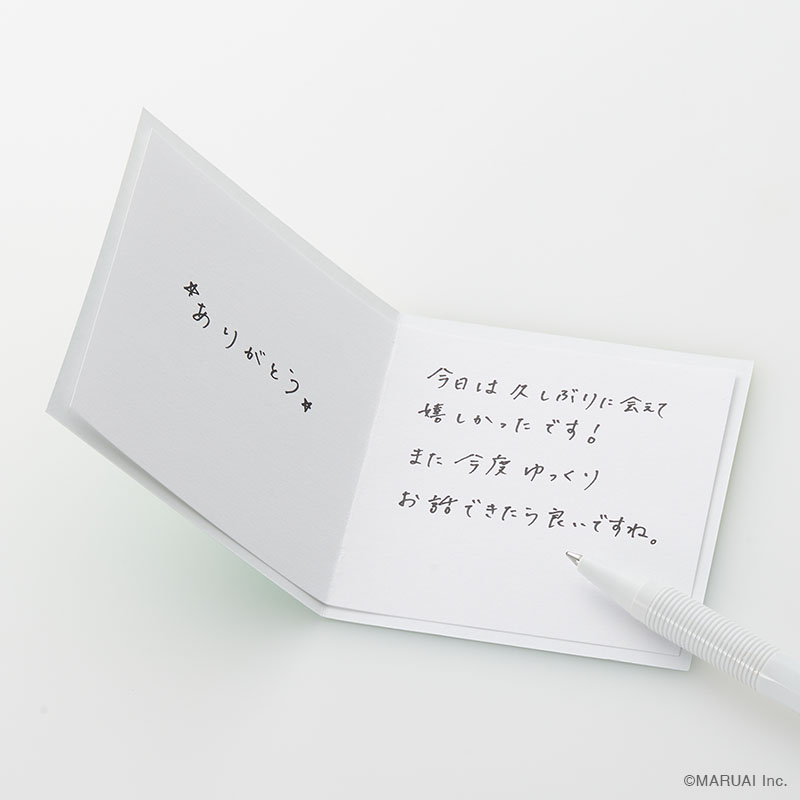 ☆ありがとう☆
今日は久しぶりに会えて
嬉しかったです!
また今度ゆっくり
お話できたら良いですね。
©MARUAI Inc.